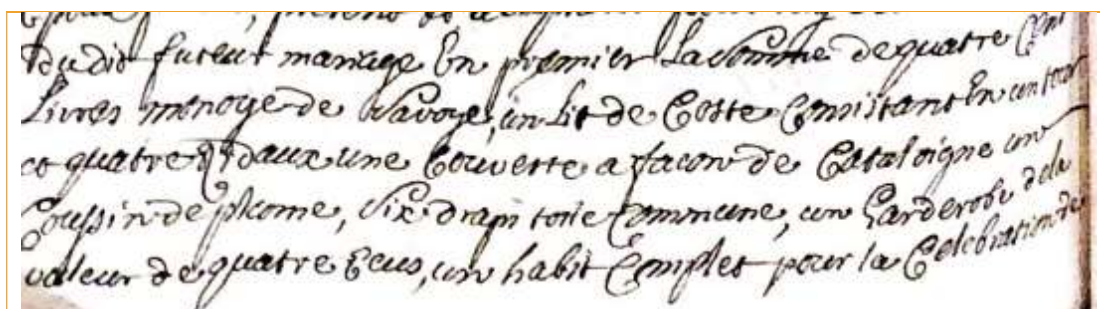 dudit futeur mariage En premier La Somme de quatre Cent
Livres monoye de Savoye, un Lit de Coste Consistant En un tour
et quatre Ridaux une Couverte a facon de Cataloigne un
Coussin de plume, Six drap toile Commune, un Garderobe de la
valeur de quatre Ecus, un habit Complet pour la Celebration de